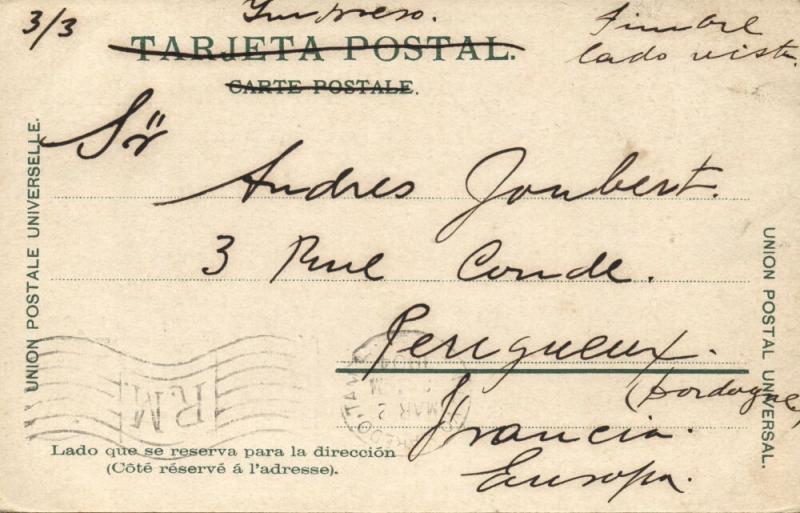 3/3
Impreso.
Timbre
lado vista.
TARJETA POSTAL.
CARTE POSTALE.
Sr
Andres Joubert.
3 Rue Conde.
Perigueux.
(Dordogne)
Francia.
Europa.
UNION POSTALE UNIVERSELLE.
UNION POSTAL UNIVERSAL.
R.M
MAR 2
Lado que se reserva para la dirección
(Côté réservé á l'adresse).